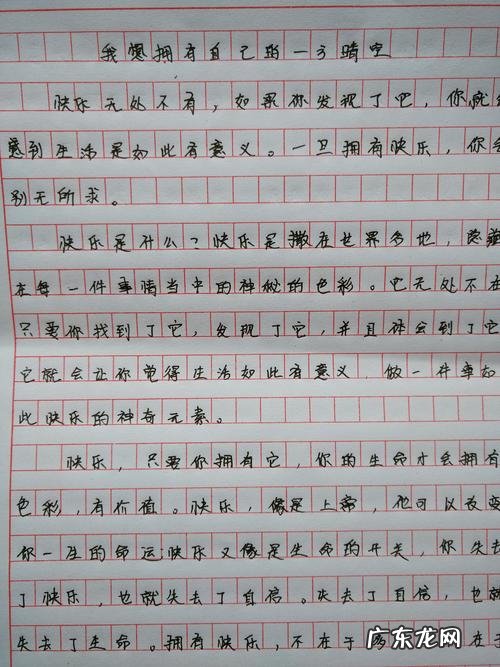 我想拥有自己的一方晴空
快乐无处不有，如果你发现了它，你就
感到生活是如此有意义。一旦拥有快乐，你会
别无所求。
快乐是什么？快乐是撒在世界各地，隐藏
在每一件事情当中的神秘的色彩。它无处不在
只要你找到了它，发现了它，并且体会到了它
它就会让你觉得生活如此有意义，做一件事如
此快乐的神奇元素。
快乐，只要你拥有它，你的生命才会拥有
色彩，有价值。快乐，像是上帝，他可以改变
你一生的命运快乐又像是生命的开关，你失去
了快乐，也就失去了自信。失去了自信，也就
失去了生命。拥有快乐，不在于 在于
广东龙网